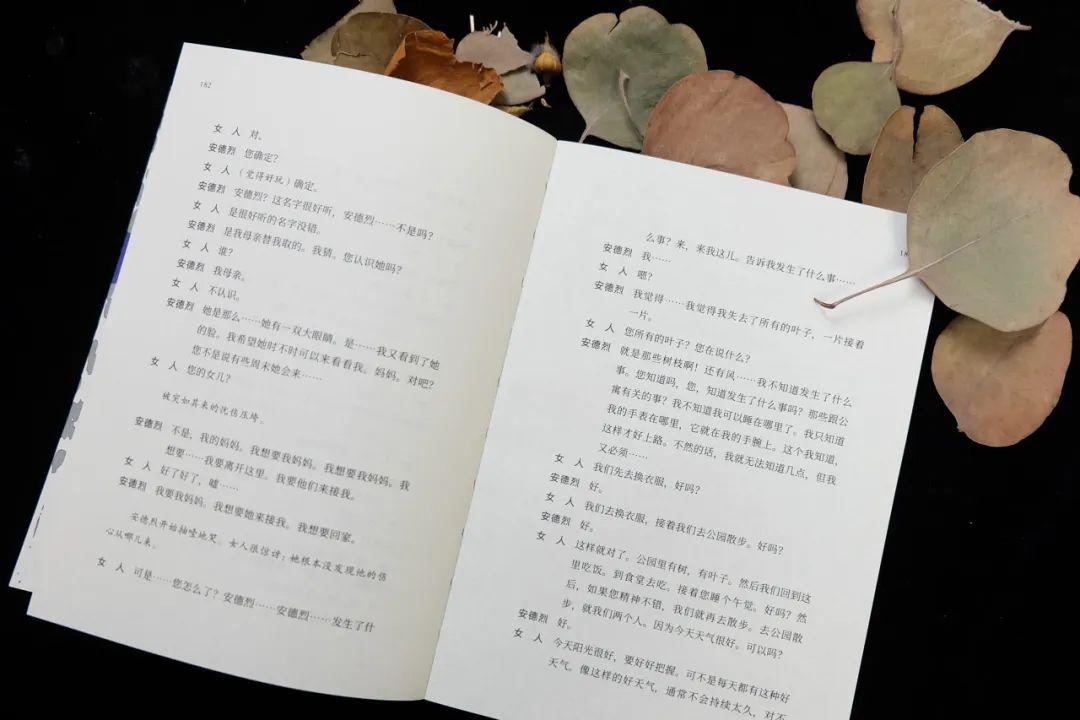 182
女 人 对。
安德烈 您确定？
女 人 （觉得好玩）确定。
安德烈 安德烈？这名字很好听，安德烈……不是吗？
女 人 是很好听的名字没错。
安德烈 是我母亲替我取的。我猜。您认识她吗？
女 人 谁？
安德烈 我母亲。
女 人 不认识。
安德烈 她是那么……她有一双大眼睛。是……我又看到了她
的脸。我希望她时不时可以来看看我。妈妈。对吧？
您不是说有些周末她会来……
女 人 您的女儿？
被突如其来的忧伤压垮。
安德烈 不是，我的妈妈。我想要我妈妈。我想要我妈妈。我
想要……我要离开这里。我要他们来接我。
女 人 好了好了，嘘……
安德烈 我要我妈妈。我想要她来接我。我想要回家。
安德烈开始抽噎地哭。女人很惊讶：她根本没发现他的伤
心从哪儿来。
女 人 可是……您怎么了？安德烈……安德烈……发生了什
18
么事？来，来我这儿。告诉我发生了什么事……
安德烈 我……
女 人 嗯？
安德烈 我觉得……我觉得我失去了所有的叶子，一片接着
一片。
女 人 您所有的叶子？您在说什么？
安德烈 就是那些树枝啊！还有风……我不知道发生了什么
事。您知道吗，您，知道发生了什么事吗？那些跟公
寓有关的事？我不知道我可以睡在哪里了。我只知道
我的手表在哪里，它就在我的手腕上。这个我知道，
这样才好上路。不然的话，我就无法知道几点，但我
又必须……
女 人 我们先去换衣服，好吗？
安德烈 好。
女 人 我们去换衣服，接着我们去公园散步。好吗？
安德烈 好。
女 人 这样就对了。公园里有树，有叶子。然后我们回到这
里吃饭。到食堂去吃。接着您睡个午觉。好吗？然
后，如果您精神不错，我们就再去散步。去公园散
步，就我们两个人。因为今天天气很好。可以吗？
安德烈 好。
女 人 今天阳光很好，要好好把握。可不是每天都有这种好
天气。像这样的好天气，通常不会持续太久，对不